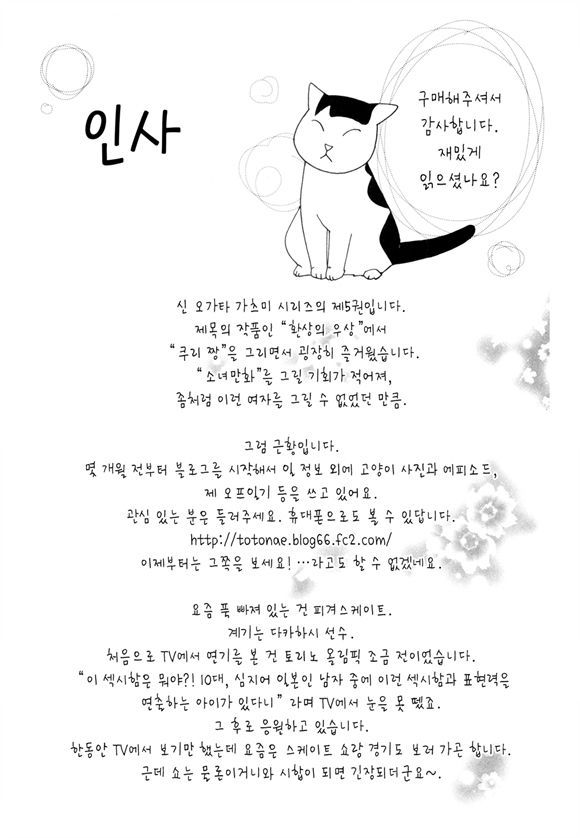 인사
구매해주셔서
감사합니다.
재밌게
읽으셨나요?
신 오가타 가츠미 시리즈의 제5권입니다.
제목의 작품인 “환상의 우상”에서
“쿠리 짱”을 그리면서 굉장히 즐거웠습니다.
“소녀만화”를 그릴 기회가 적어져,
좀처럼 이런 여자를 그릴 수 없었던 만큼.
그럼 근황입니다.
몇 개월 전부터 블로그를 시작해서 일 정보 외에 고양이 사진과 에피소드,
제 오프일기 등을 쓰고 있어요.
관심 있는 분은 들러주세요. 휴대폰으로도 볼 수 있답니다.
http://totonae.blog66.fc2.com/
이제부터는 그쪽을 보세요! …라고도 할 수 없겠네요.
요즘 푹 빠져 있는 건 피겨스케이트.
계기는 다카하시 선수.
처음으로 TV에서 연기를 본 건 토리노 올림픽 조금 전이었습니다.
“이 섹시함은 뭐야?! 10대, 심지어 일본인 남자 중에 이런 섹시함과 표현력을
연출하는 아이가 있다니” 라며 TV에서 눈을 못 뗐죠.
그 후로 응원하고 있습니다.
한동안 TV에서 보기만 했는데 요즘은 스케이트 쇼랑 경기도 보러 가곤 합니다.
근데 쇼는 물론이거니와 시합이 되면 긴장되더군요~.